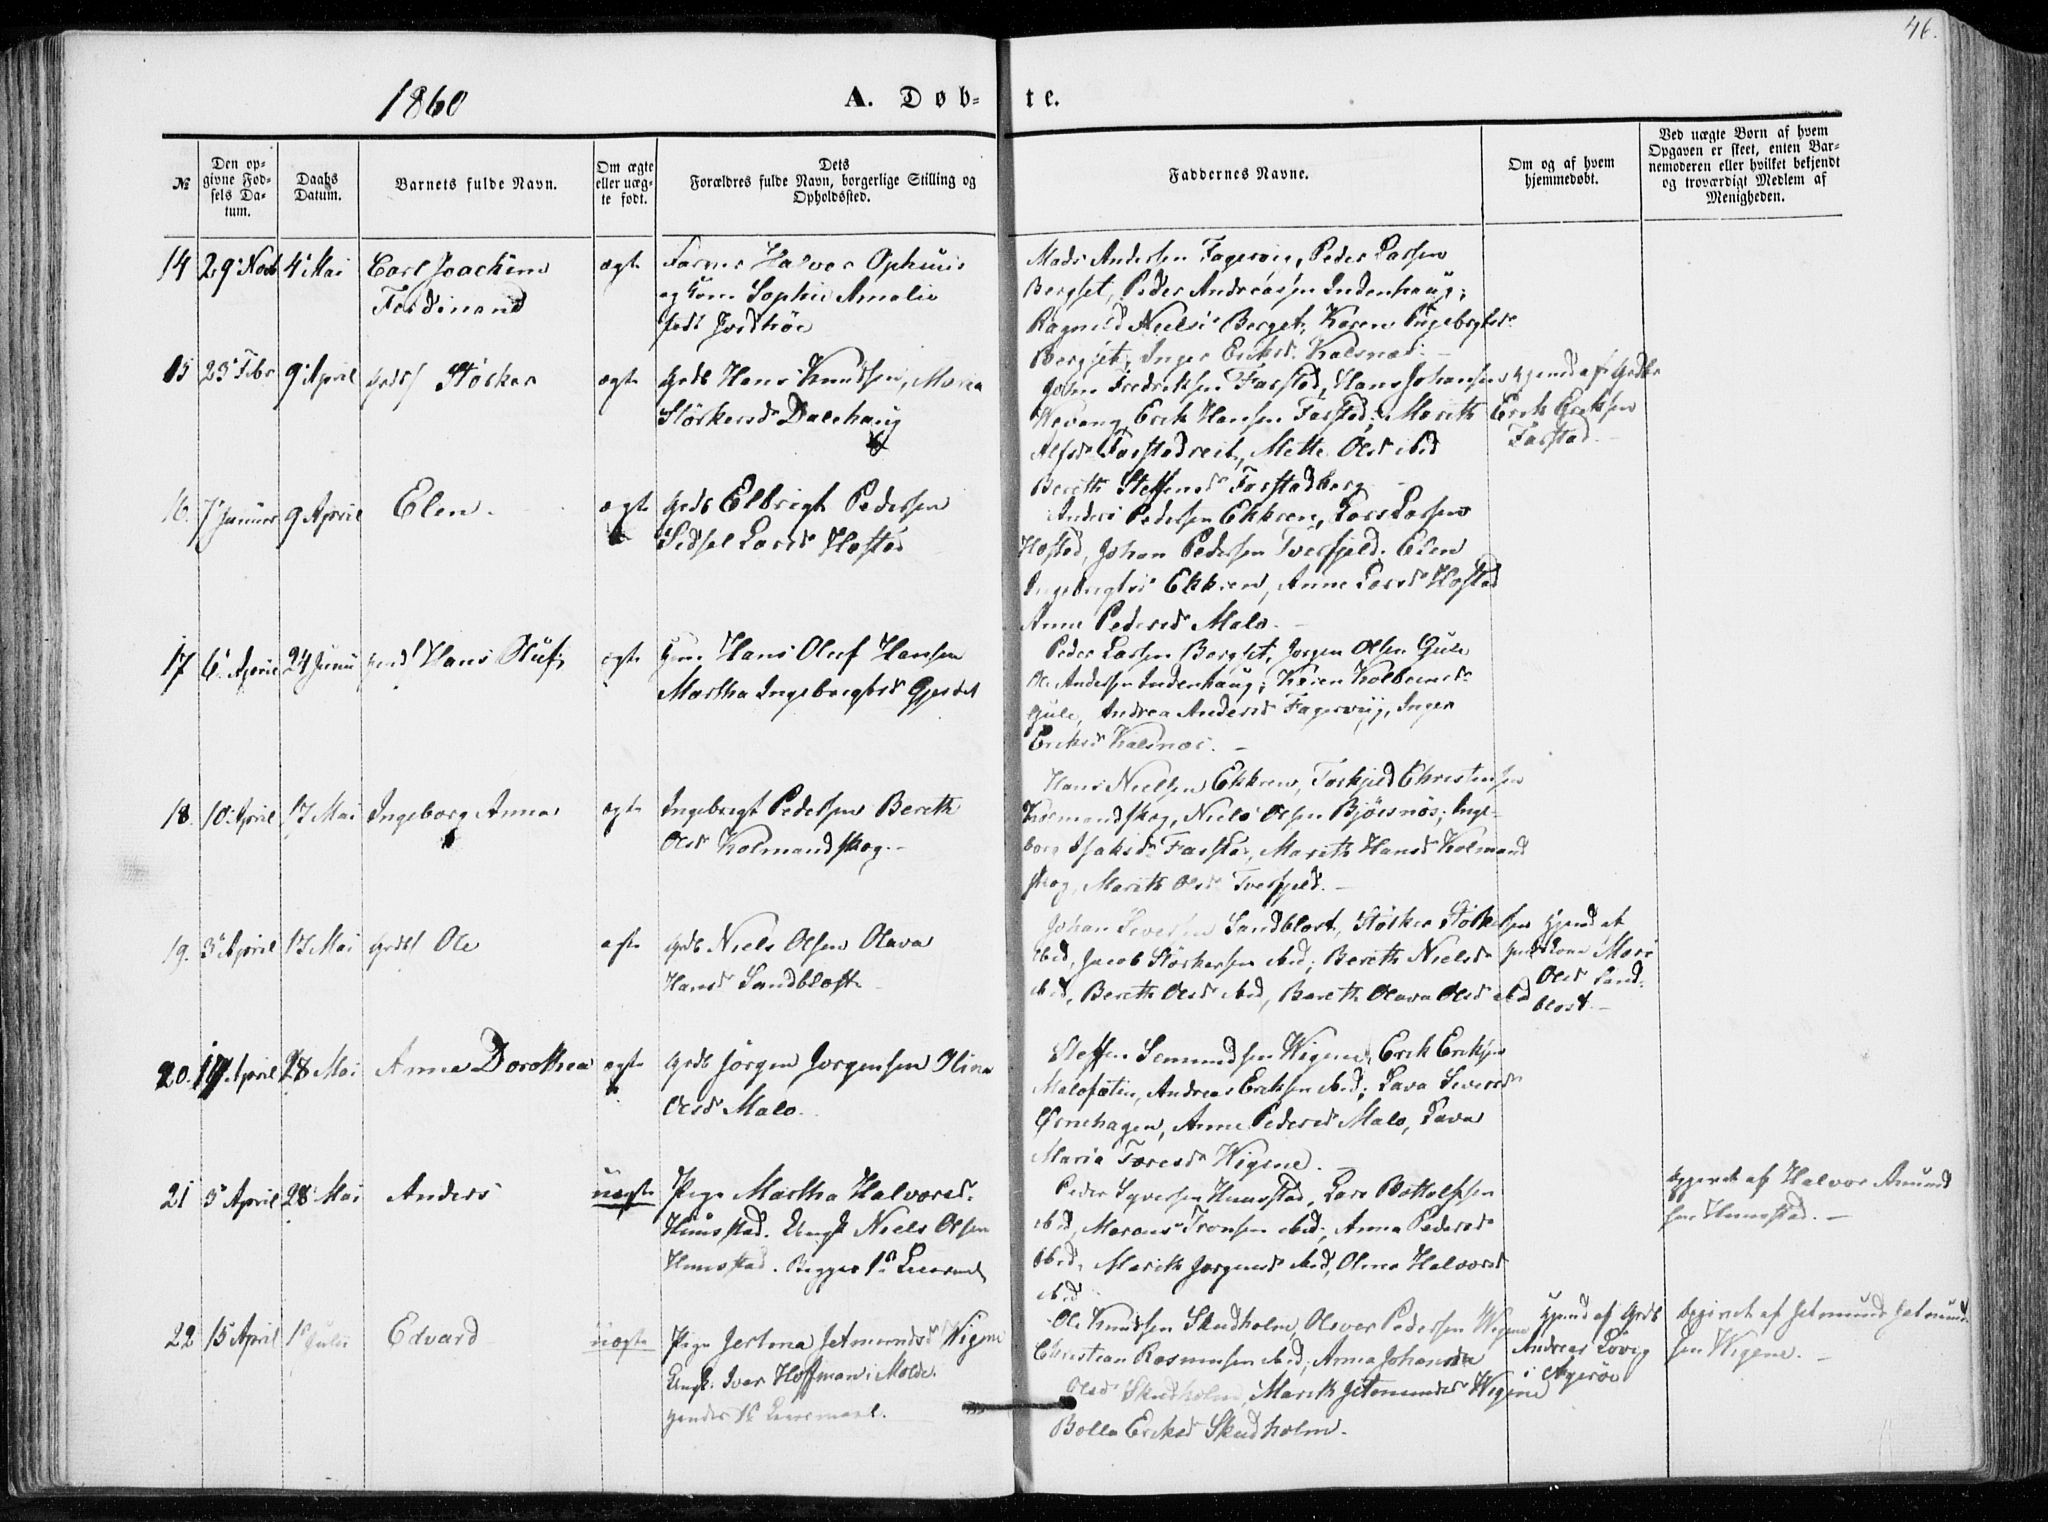 46.
1860
A. Døb-
te.
No
Den op-
givne Fød-
sels Da-
tum.
Daabs
Datum.
Barnets fulde Navn.
Om ægte
eller uæg-
te født.
Dets
Forældres fulde Navn, borgerlige Stilling og
Opholdssted.
Faddernes Navne.
Om og af hvem
hjemmedøbt.
Ved uægte Børn af hvem
Opgaven er skeet, enten Bar-
nemoderen eller hvilket bekjendt
og troværdigt Medlem af
Menigheden.
14 29 Novb 4 Mai
Carl Joachim
Ferdinand
ægte
Halvor Ophuus
og Kone Sophie Amalie
født
Mads Andersen Fagervig, Peder Larsen
Bergset, Peder Andreasen Indenhaug;
Ragnild Niels Berget, Karen Ingebrigtsd
Bergset, Inger Eriksd. Kalsnæs.
15 25 Febr 9 April
Størker
ægte
Hans Knudsen, Maria
Størkersd Dalehaug
John Fredriksen Farstad, Hans Johansen
Wevang, Erik Hansen Farstad; Marith
Alfsd Farstadreit, Mette Olsd ibid
Bereth Steffensd Farstadberg
hjemd af Grdbr
Erik Eriksen
Farstad.
16. 7 Januar 9 April
Elen.
ægte
Grdb Elbrigt Pedersen
Sidsel Larsd Hostad
Anders Pedersen Ekkren, Lars Larsen
Hostad, Johan Pedersen Tverfjeld. Elen
Ingebrigtsd Ekkren, Anne Larsd Hostad
Anne Pedersd Malo.
17 6 April 24 Juni
Hans Oluf
ægte
Hans Oluf Hansen
Martha Ingebrigtsd Gjerdet
Peder Larsen Bergset, Jørgen Olsen Gule
Ole Andersen Indenhaug; Karen Kolbeinsd
Gule, Andrea Andersd Fagervig, Inger
Eriksd Kalsnæs.
18. 10 April 17 Mai
Ingeborg Anna
ægte
Ingebrigt Pedersen Bereth
Olsd Kolmandskog.
Hans Nielsen Ekkren, Torkjeld Christensen
Kolmandskog, Niels Olsen Bjørsnøs; Inge-
borg Isaksd Farstad, Marith Hansd Kolmand
skog, Marith Olsd Tverfjeld.
19. 3 April 17 Mai
Ole
ægte
Grdb Niels Olsen Olava
Hansd Sandblost
Johan Iversen Sandblost, Størker Størkersen
ibid, Jacob Størkersen ibid; Bereth Nielsd
ibid, Bereth Olsd ibid, Bereth Olava Olsd ibid
hjemd af
Mari
Olsd Sand-
blost.
20. 17 April 28 Mai
Anne Dorothea
ægte
Grdb Jørgen Jørgensen Olina
Olsd Malo.
Steffen Semundsen Wigene, Erik Eriksen
Malofoten, Andreas Eriksen ibid; Lava Iversd
Ørnehagen, Anne Pedersd Malo, Lava
Maria Toresd Wigene.
21 5 April 28 Mai
Anders
uægte
Pige Martha Halvorsd.
Hunstad. Ungk Niels Olsen
Hunstad. Begges 1ste Leiermaal
Peder Syversen Hunstad, Lars Bottolfsen
ibid, Marcus Tronsen ibid; Anna Pedersd
ibid, Marith Jørgensd ibid, Olina Halvorsd
ibid
Opgivet af Halvor Amund
sen Hunstad.
22 15 April 1 Juli
Edvard
uægte
Pige Jertina Jetmundsd Wigene
Ungk. Iver Hoffman i Molde.
hendes 1ste Leiermaal.
Ole Knudsen Skudholm, Oliver Pedersen Wigene
Christian Rasmusen ibid; Anna Johanna
Olsd Skudholm, Marith Jetmundsd Wigene
Bolla Eriksd Skudholm.
hjemd af Grdb
Andreas Løvig
i Agerøe
Opgivet af Jetmund Jetmund-
sen Wigene.